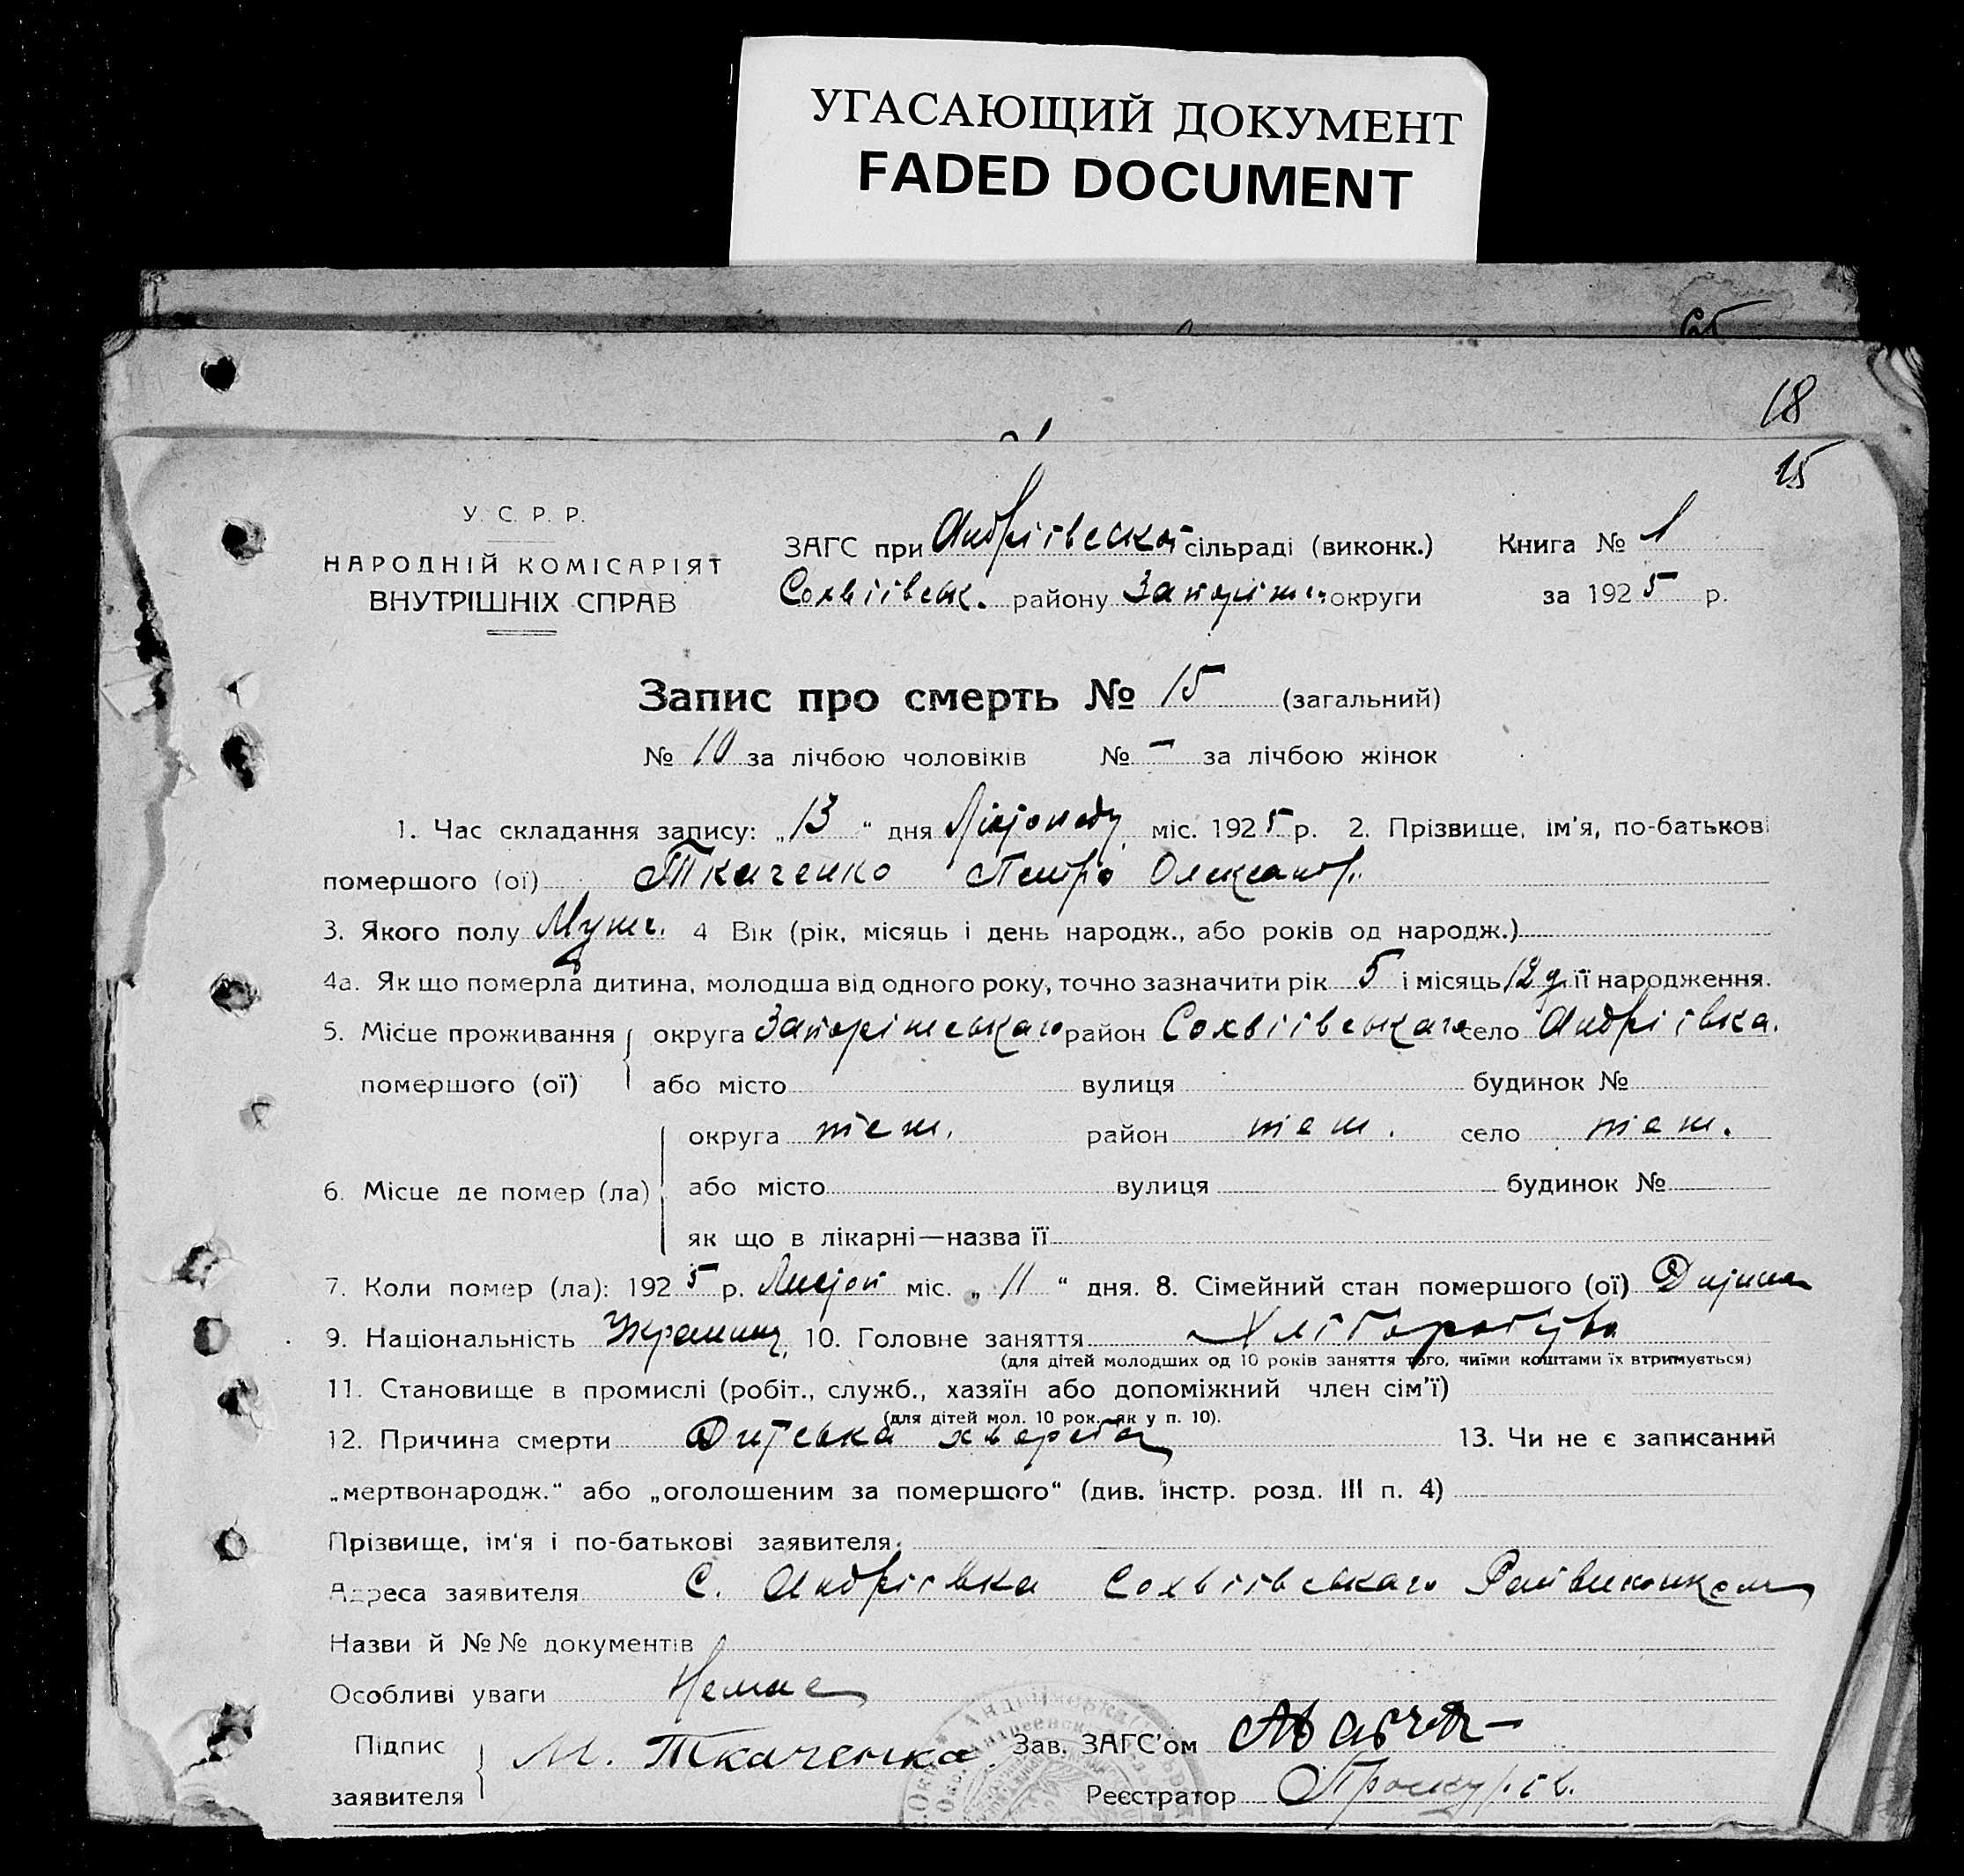 УГАСАЮЩИЙ ДОКУМЕНТ
FADED DOCUMENT
18
15
У. С. Р. Р.
НАРОДНІЙ КОМІСАРІЯТ
ВНУТРІШНІХ СПРАВ
ЗАГС при Андріївської сільраді (виконк.) Книга № 1
Софіївськ. району Запоріж. округи за 1925 р.
Запис про смерть № 15 (загальний)
№ 10 за лічбою чоловіків № — за лічбою жінок
1. Час складання запису: „13“ дня міс. 1925 р. 2. Прізвище, ім'я, по-батькові
помершого (ої) Ткаченко Петро Олександр.
3. Якого полу Муж. 4 Вік (рік, місяць і день народж., або років од народж.)
4а. Як що померла дитина, молодша від одного року, точно зазначити рік 5 і місяць 12 д. її народження.
5. Місце проживання округа Запоріжськаго район Сохвіївськаго село Андріївка.
помершого (ої) або місто вулиця будинок №
округа теж. район теж. село теж.
6. Місце де помер (ла) або місто вулиця будинок №
як що в лікарні—назва її
7. Коли помер (ла): 1925 р. Листоп міс. „11“ дня. 8. Сімейний стан помершого (ої) Дитина
9. Національність 10. Головне заняття Хліборобство
(для дітей молодших од 10 років заняття того, чиїми коштами їх втримується)
11. Становище в промислі (робіт., служб., хазяїн або допоміжний член сім'ї)
(для дітей мол. 10 рок. як у п. 10).
12. Причина смерти Дитська хвороба 13. Чи не є записаний
„мертвонародж.“ або „оголошеним за помершого“ (див. інстр. розд. III п. 4)
Прізвище, ім'я і по-батькові заявителя.
Адреса заявителя С. Андріівка Сохвіівськаго Райвиконком
Назви й №№ документів
Особливі уваги Немае
Підпис заявителя М. Ткаченка Зав. ЗАГС'ом
Реєстратор